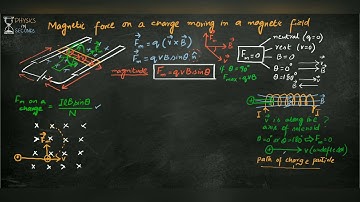 PHYSICS
IN
SECONDS
Magnetic force on a change moving in a magnetic field
F⃗m = q(v⃗ × B⃗)
F⃗m = qvB sinθ n̂
magnitude Fm = qvB sinθ
if θ = 90°
Fmax = qvB
Fm = 0
neutral (q=0)
rest (v=0)
B = 0
θ = 0°
θ = 180°
Fm on a change = IlB sinθ / N
v⃗ is along the
axis of solenoid
θ = 0° or θ = 180° ⇒ Fm = 0
v (undeflected)
path of charge particle